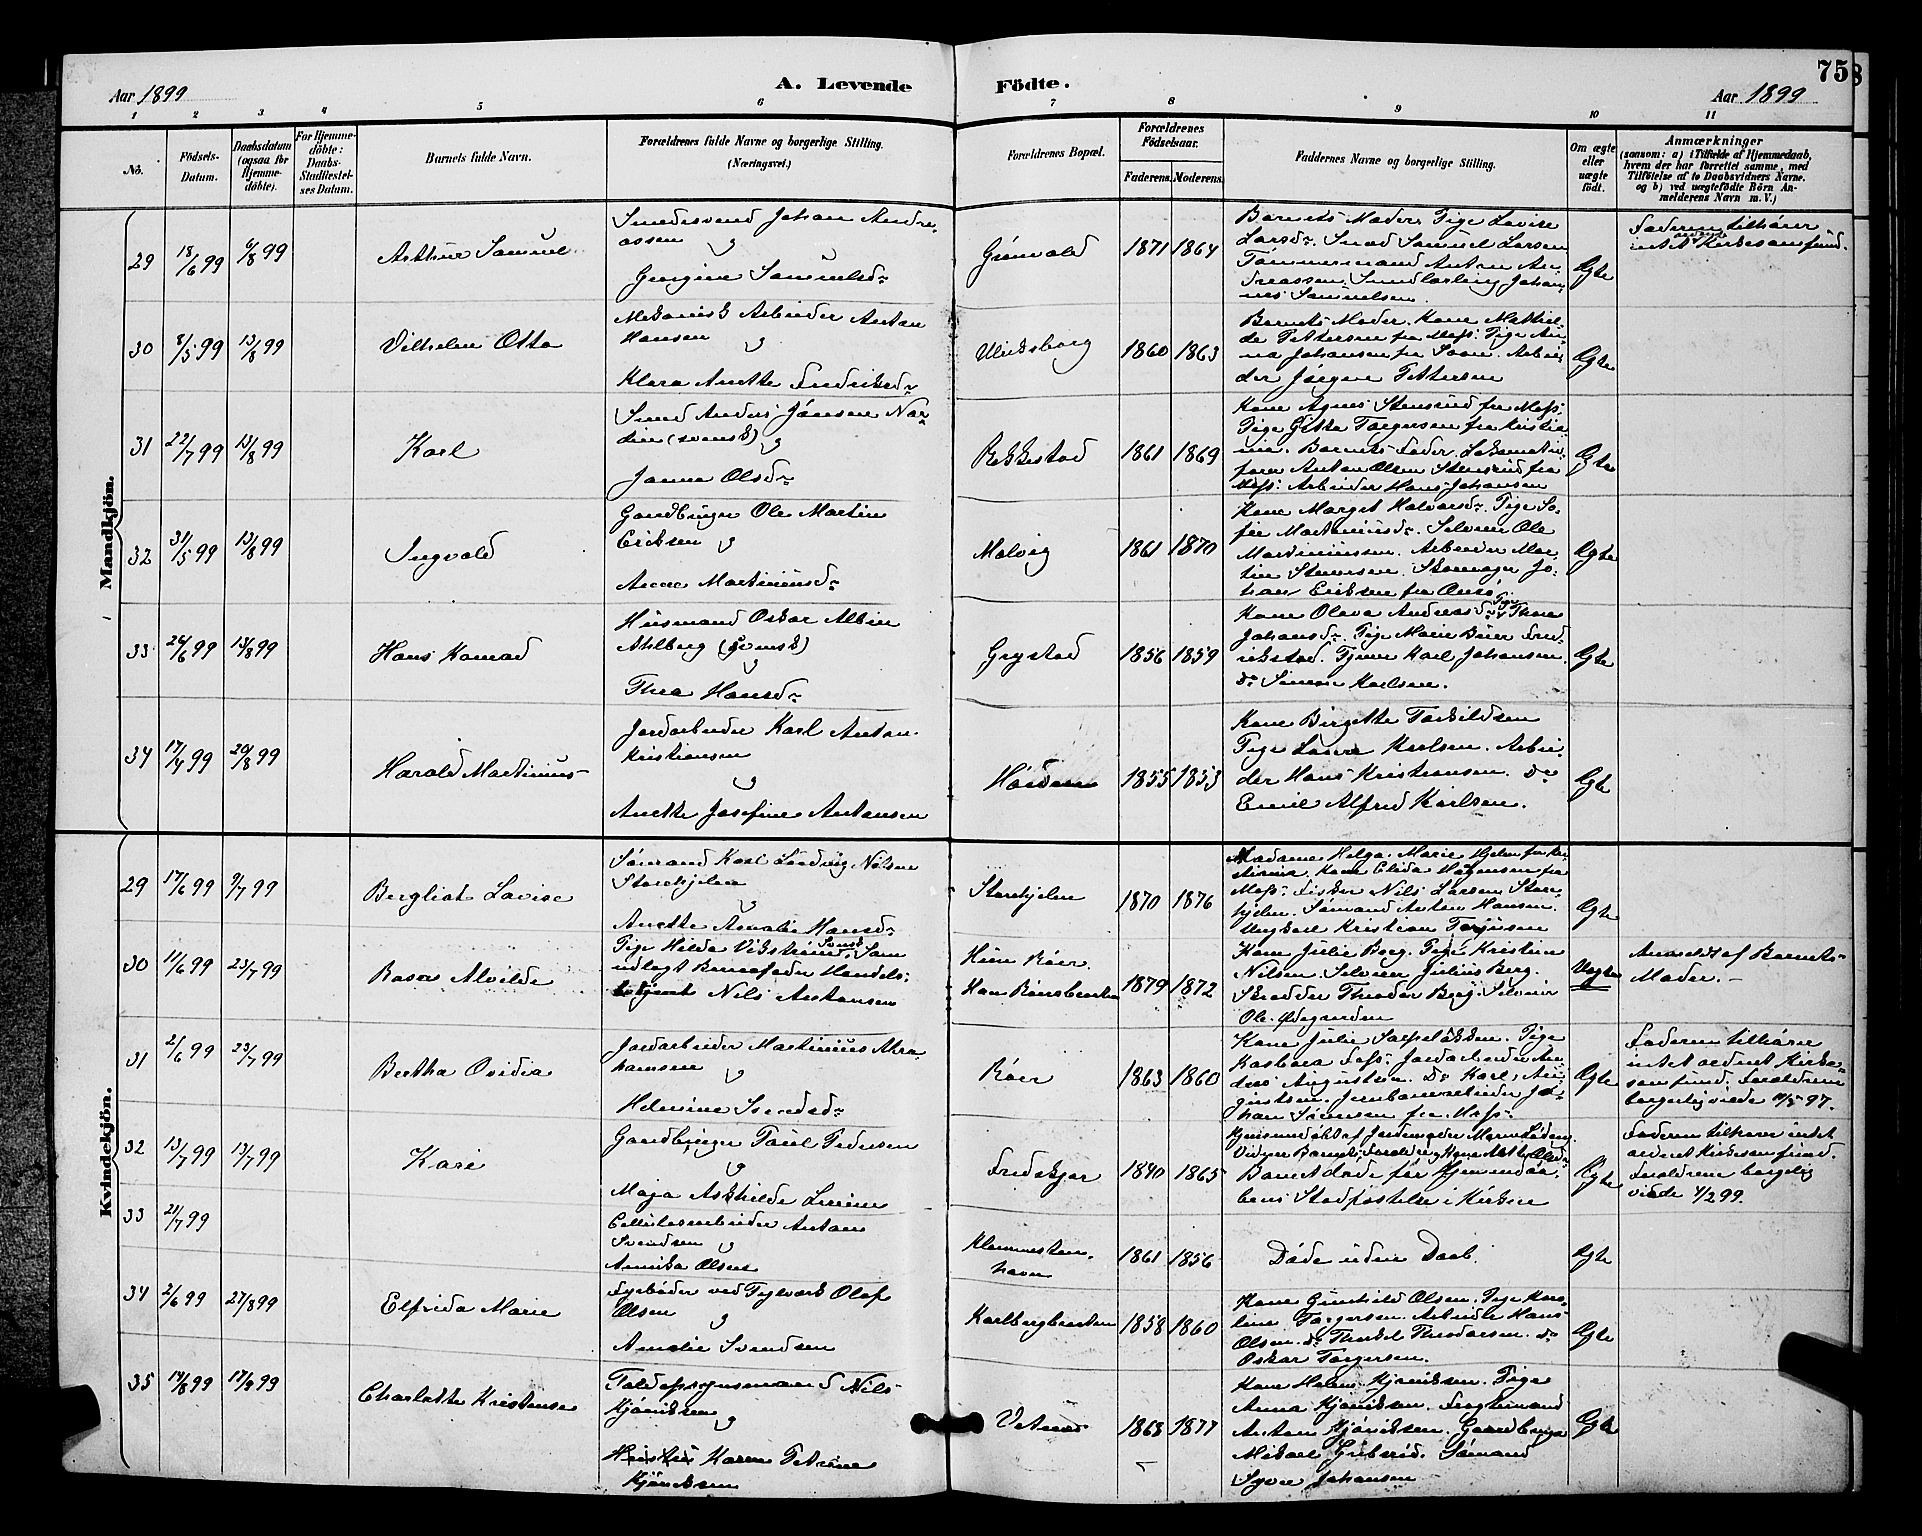 75
Aar 1899
A. Levende
Födte.
Aar 1899
1 2 3 4 5 6 7 8 9 10 11
No.
Födsels-
Datum.
Daabsdatum
(ogsaa for
Hjemme-
döbte).
For Hjemme-
döbte:
Daabs-
Stadfæstel-
ses Datum.
Barnets fulde Navn.
Forældrenes fulde Navne og borgerlige Stilling.
(Næringsvei.)
Forældrenes Bopæl.
Forældrenes
Födselsaar.
Faderens. Moderens.
Faddernes Navne og borgerlige Stilling.
Om ægte
eller
uægte
födt.
Anmærkninger
(saasom: a) i Tilfælde af Hjemmedaab,
hvem der har forrettet samme, med
Tilföielse af to Daabsvidners Navne.
og b) ved uægtefödte Börn An-
melderens Navn m. V.)
Mandkjön.
29
18/6 99
6/8 99
Arthur Samuel
Smedesvend Johan Andre-
assen
og
Gurgine Samuelsdr
Grønvold
1871 1864
Barnets Moder, Pige Lovise
Larsdr. Smed Samuel Larsen
Tømmermand Anton An-
dreassen. Smedlærling Johan-
nes Samuelsen
Ægte
Faderen tilhører
intet ordnet Kirkesamfund.
30
8/5 99
13/8 99
Vilhelm Otto
Mekanisk Arbeider Anton
Hansen
og
Klara Anette Fredriksdr
Ulriksborg
1860 1863
Barnets Moder. Kone Mathil-
de Pettersen fra Moss. Pige An-
na Johansen fra Soon. Arbei-
der Jørgen Pettersen
Ægte
31
22/7 99
13/8 99
Karl
Smed Anders Jansen No-
din (svensk) og
Janna Olsdr
Rekkestad
1861 1869
Kone Agnes Stensrud fra Moss.
Pige Gitta Torgersen fra Kristia-
nia. Barnets Fader. Lokomotiv-
fører Anton Olsen Stensrud fra
Moss. Arbeider Hans Johansen
Ægte
32
31/5 99
13/8 99
Ingvald
Gaardbruger Ole Martin
Eriksen og
Anne Martiniusdr
Molvig
1861 1870
Kone Marget Halvorsdr. Pige So-
fie Martiniusdr. Selveier Ole
Martiniussen. Arbeider Mar-
tin Stensen. Skomager Jo-
han Eriksen fra Onsø
Ægte
33
26/6 99
13/8 99
Hans Konrad
Husmand Oskar Albin
Ahlberg (svensk)
og
Thea Hansdr
Grystad
1856 1859
Kone Olava Andreasdr. Pige Thora
Johansdr. Pige Marie Buer Fred-
rikstad. Tjener Karl Johansen.
Do Simon Karlsen.
Ægte
34
17/4 99
20/8 99
Harald Martinius
Jordarbeider Karl Anton
Kristiansen
og
Anette Josefine Antonsen
1855 1853
Kone Birgitte Torkildsen
Pige Laura Karlsen. Arbei-
der Hans Kristiansen. Do
Emil Alfred Karlsen.
Ægte
Kvindekjön.
29
17/6 99
9/7 99
Bergliot Lovise
Sømand Karl Ludvig Nilsen
Storehjelen
og
Anette Amalie Hansdr
Storehjelen
1870 1876
Madame Helga Marie Hjelen fra Kri-
stiania. Kone Elida Hågensen fra
Moss. Fisker Nils Larsen Store-
hjelen. Sømand Anton Hansen.
Ungkarl Kristian Torgersen
Ægte
30
11/6 99
23/7 99
Borow Alvilde
Pige Hilda Vikstrøm, Svensk. Som
udlagt Barnefader Handels-
betjent Nils Antonsen
Hun Røer.
Han Rønsbraaten
1879 1872
Kone Julie Berg. Pige Kristine
Nilsen. Selveier Julius Berg.
Skrædder Theodor Berg. Selveier
Ole Ødegaarden
Uægte
Anmeldt af Barnets
Moder.
31
2/6 99
23/7 99
Bertha Ovidia
Jordarbeider Martinius Abra-
hamsen
og
Helmine Svendsdr
Røer
1863 1860
Kone Julie Sarpeløkken. Pige
Karbora Foss. Jordarbeider An-
dreas Augustsen. Do Karl Au-
gustsen. Jernbanearbeider Jo-
han Simensen fra Moss.
Ægte
Faderen tilhører
intet ordnet Kirke-
samfund. Forældrene
borgerlig viede 10/5 97.
32
13/7 99
13/7 99
Kari
Gaardbruger Paul Pedersen
og
Maja Askhilde Lurine
Fredskjær
1840 1865
Hjemmedøbt af Jordemoder Maren Lødeng
Vidner Barnets Forældre, Kone Mathe Olsdr
Barnet døde før Hjemmedaa-
bens Stadfæstelse i Kirken
Ægte
Faderen tilhører intet
ordnet Kirkesamfund.
Forældrene borgelig
viede 4/2 99.
33
21/7 99
Cellulosearbeider Anton
Svendsen og
Annika Olsen
Klemmesten-
havn
1861 1856
Døde uden Daab.
Ægte
34
2/6 99
27/8 99
Elfrida Marie
Fyrbøder ved Teglverk Olaf
Olsen og
Amalie Svendsen
Karlbergbraaten
1858 1860
Kone Gunhild Olsen. Pige Karo-
line Torgersen. Arbeider Hans
Olsen. do Thorkel Theodorsen. do
Oskar Torgersen.
Ægte
35
14/8 99
17/9 99
Charlotte Kristense
Toldopsynsmand Nils
Kjøniksen
og
Karen Petrine
Kjøniksen
1868 1877
Kone Helene Kjøniksen. Pige
Anna Kjøniksen. Fragtemand
Anton Kjøniksen. Gaardbruger
Mikael Guberød. Sømand
Syver Johansen
Ægte